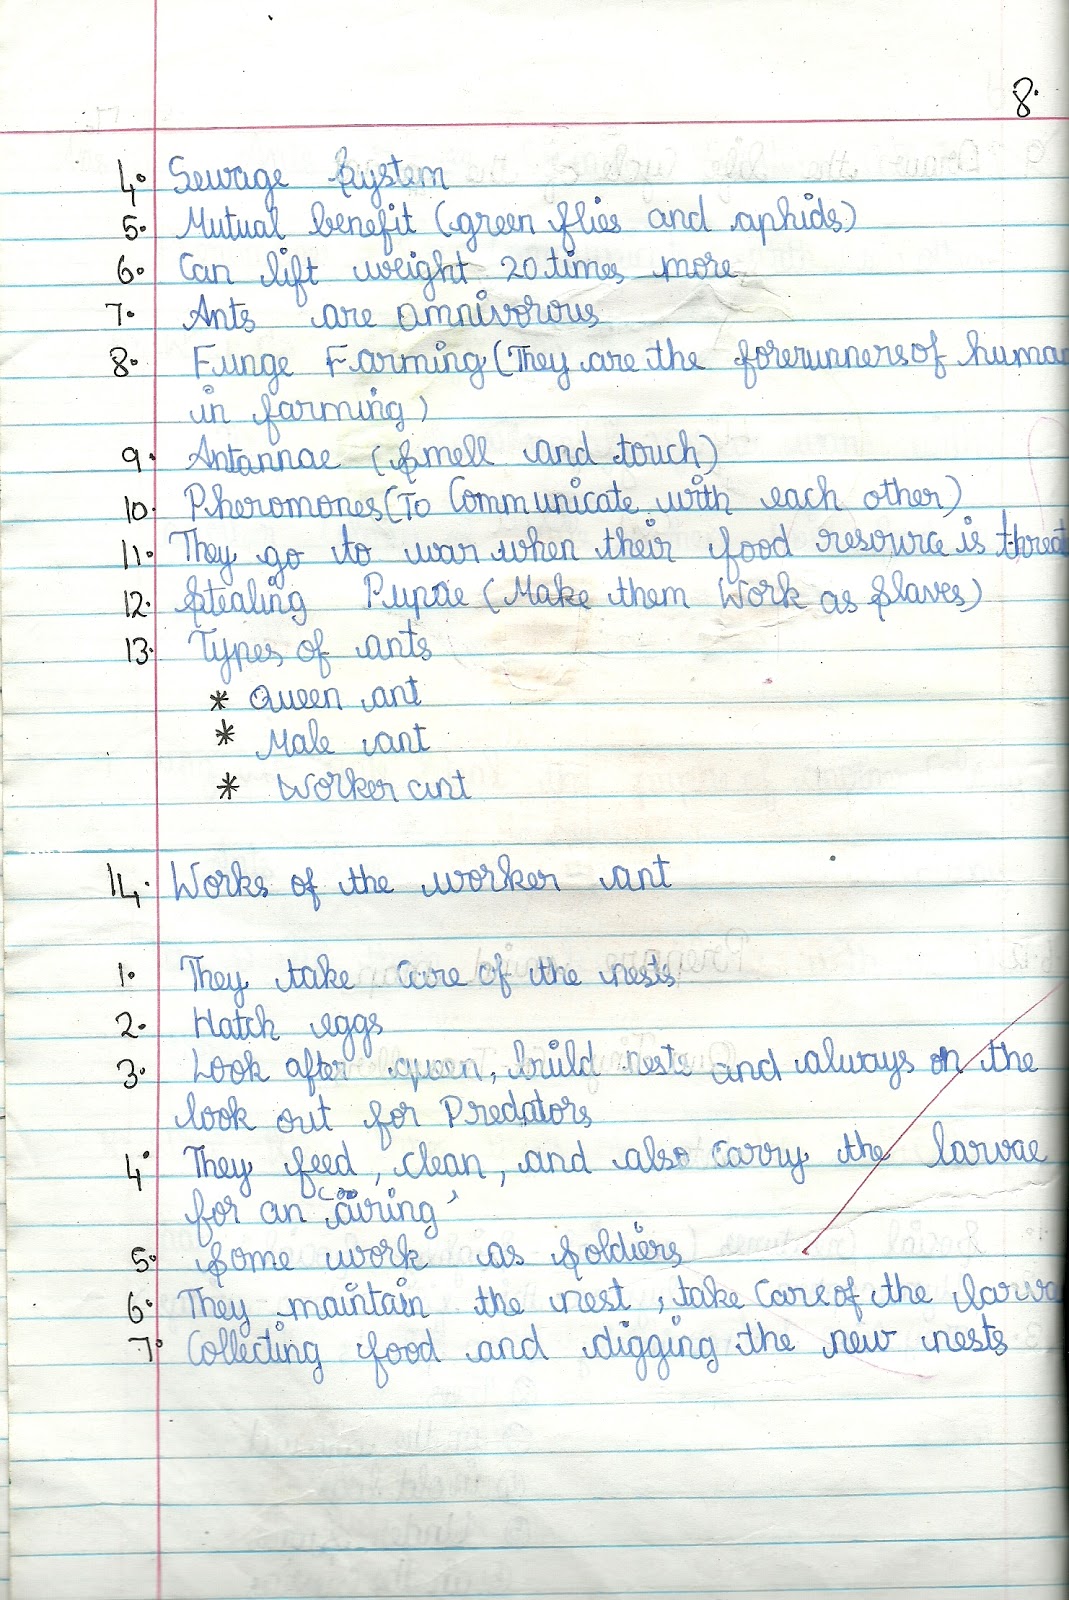 8.
4. Sewage System
5. Mutual benefit (green flies and aphids)
6. Can lift weight 20 times more
7. Ants are omnivorous
8. Funge Farming (They are the forerunners of huma
in farming)
9. Antannae (Smell and touch)
10. Pheromones (To Communicate with each other)
11. They go to war when their food resource is threat
12. Stealing Pupae (Make them Work as Slaves)
13. Types of ants
* Queen ant
* Male ant
* Worker ant
14. Works of the worker ant
1. They take care of the nests
2. Hatch eggs
3. Look after queen, build nests and always on the
look out for Predators
4. They feed, clean, and also carry the larvae
for an 'airing'
5. Some work as Soldiers
6. They maintain the nest, take care of the larva
7. Collecting food and digging the new nests